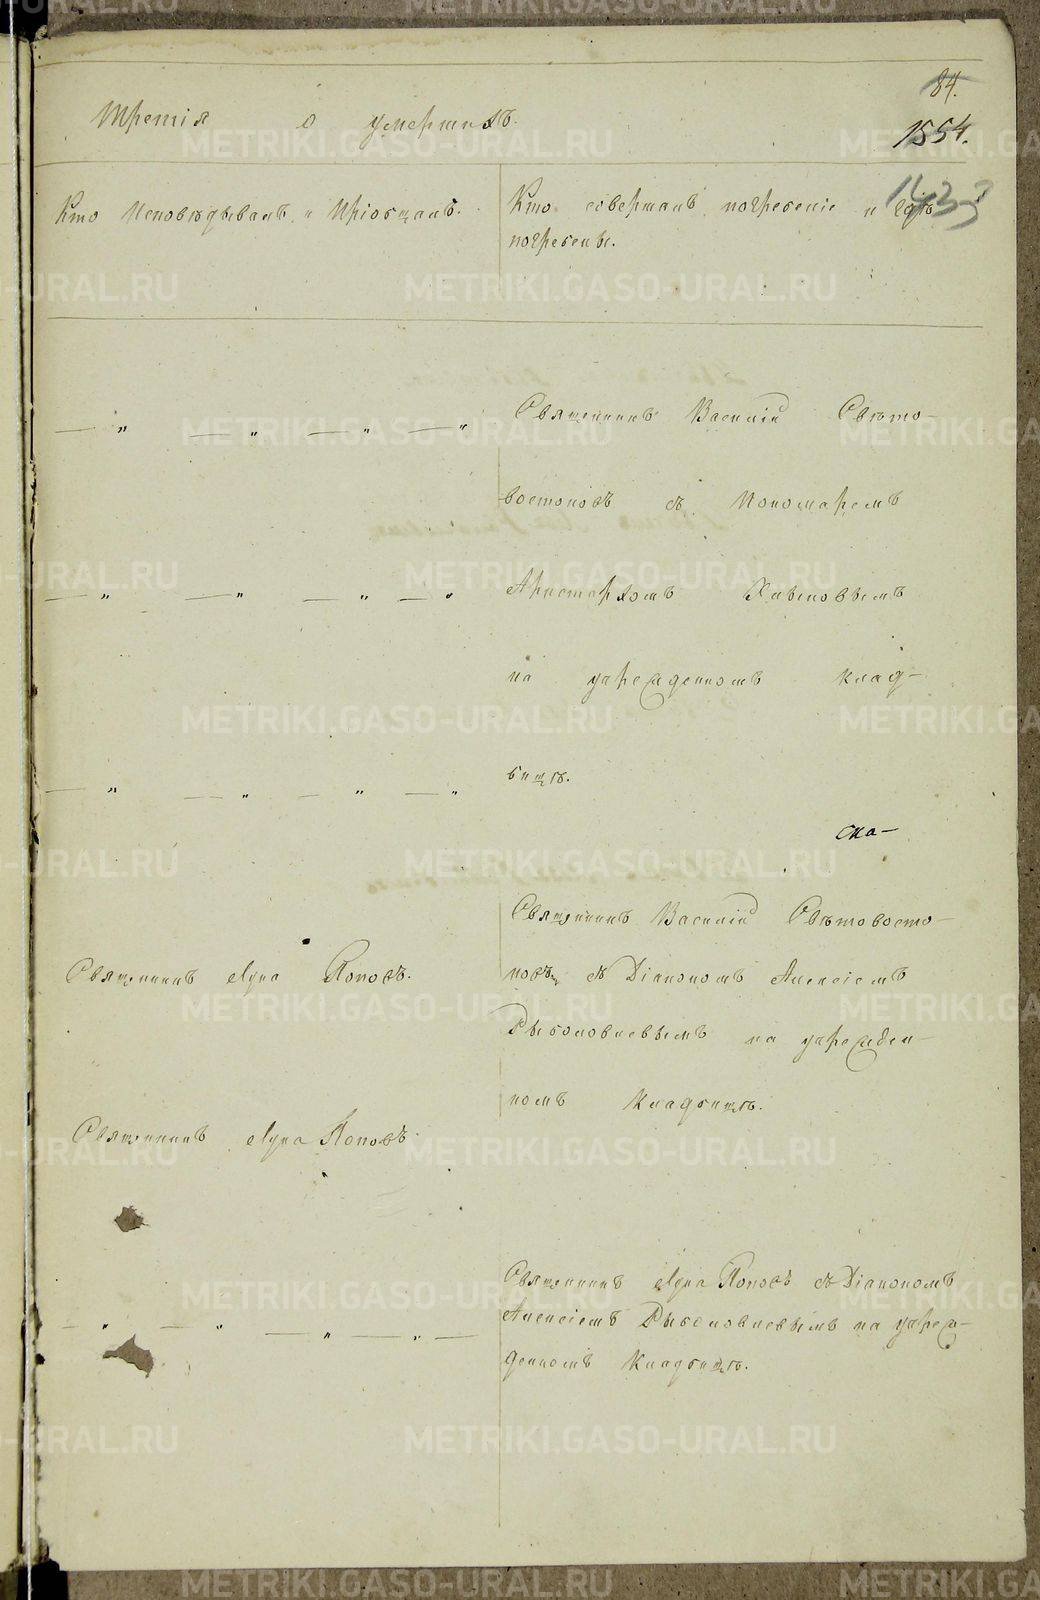 84.
Третія о умершихъ.
1554.
1433
Кто Исповѣдывалъ и Пріобщалъ.
Кто совершалъ погребеніе и гдѣ
погребены.
Священникъ Василій Свѣто-
— „ — „ — „ — „
востоковъ съ Пономаремъ
— „ — „ — „ — „
Аристархомъ
на учрежденномъ клад-
— „ — „ — „ — „
бищѣ.
ска-
Священникъ Василій Свѣтовосто-
Священникъ Лука Поповъ.
ковъ съ Діакономъ Алексіемъ
Рыболовлевымъ на учрежден-
номъ Кладбищѣ.
Священникъ Лука Поповъ.
Священникъ Лука Поповъ съ Діакономъ
— „ — „ — „ — „ —
Алексіемъ Рыболовлевымъ на учреж-
денномъ Кладбищѣ.
METRIKI.GASO-URAL.RU